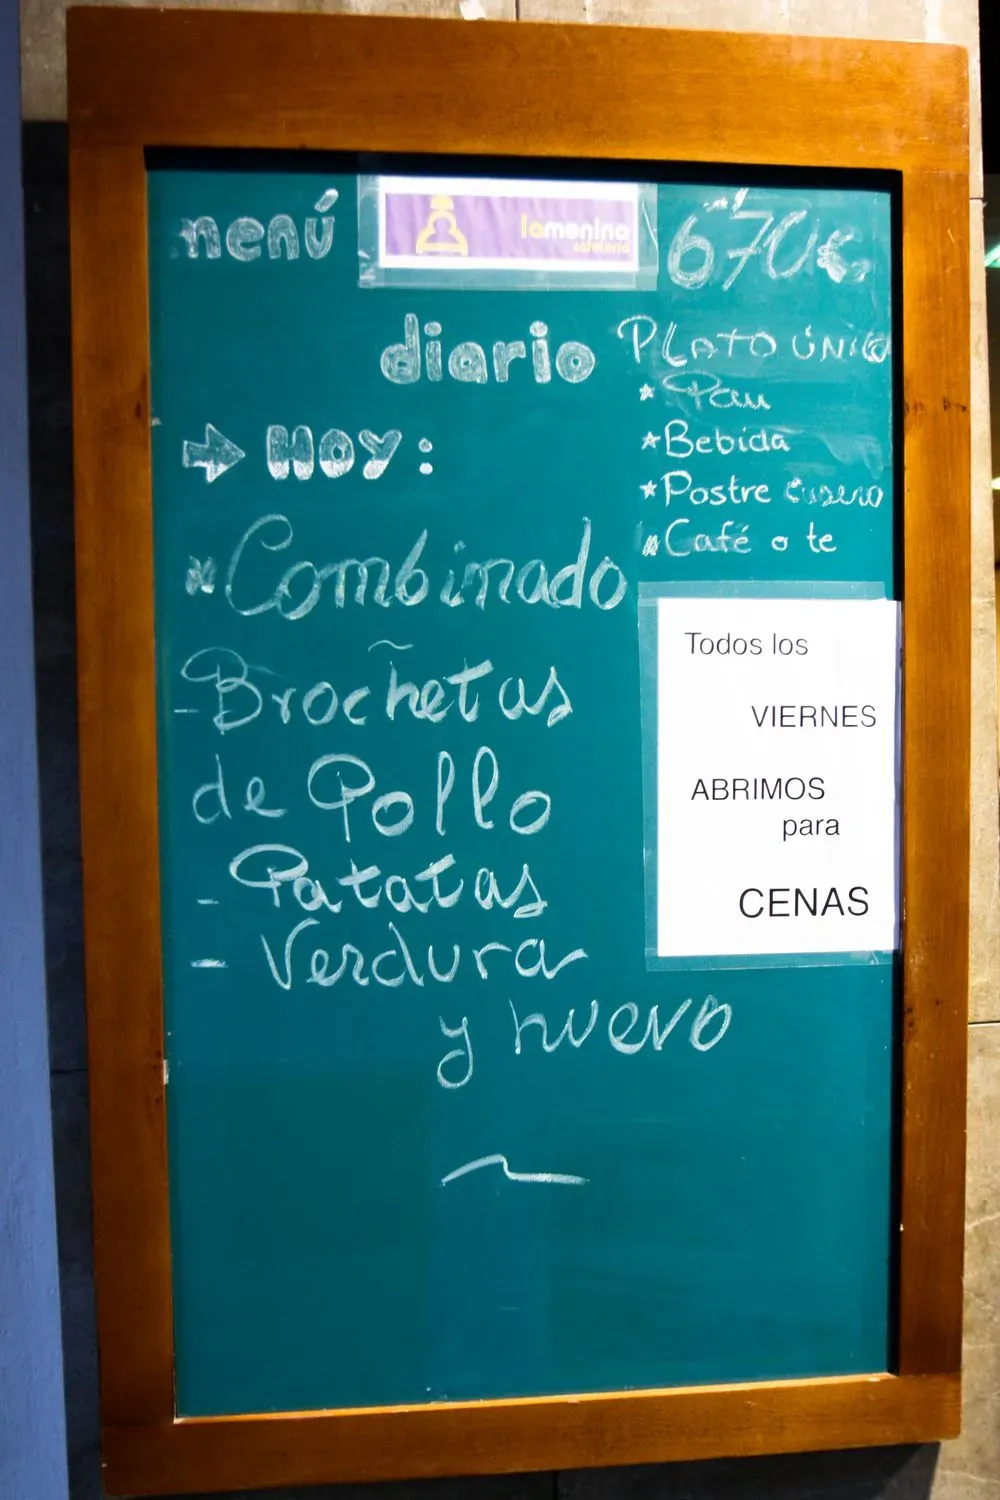 menú
lamenina
cafetería
6'70€
diario
PLATO ÚNICO
* Pan
* Bebida
* Postre casero
* Café o te
→ HOY:
* Combinado
- Brochetas
de Pollo
- Patatas
- Verdura
y huevo
Todos los
VIERNES
ABRIMOS
para
CENAS